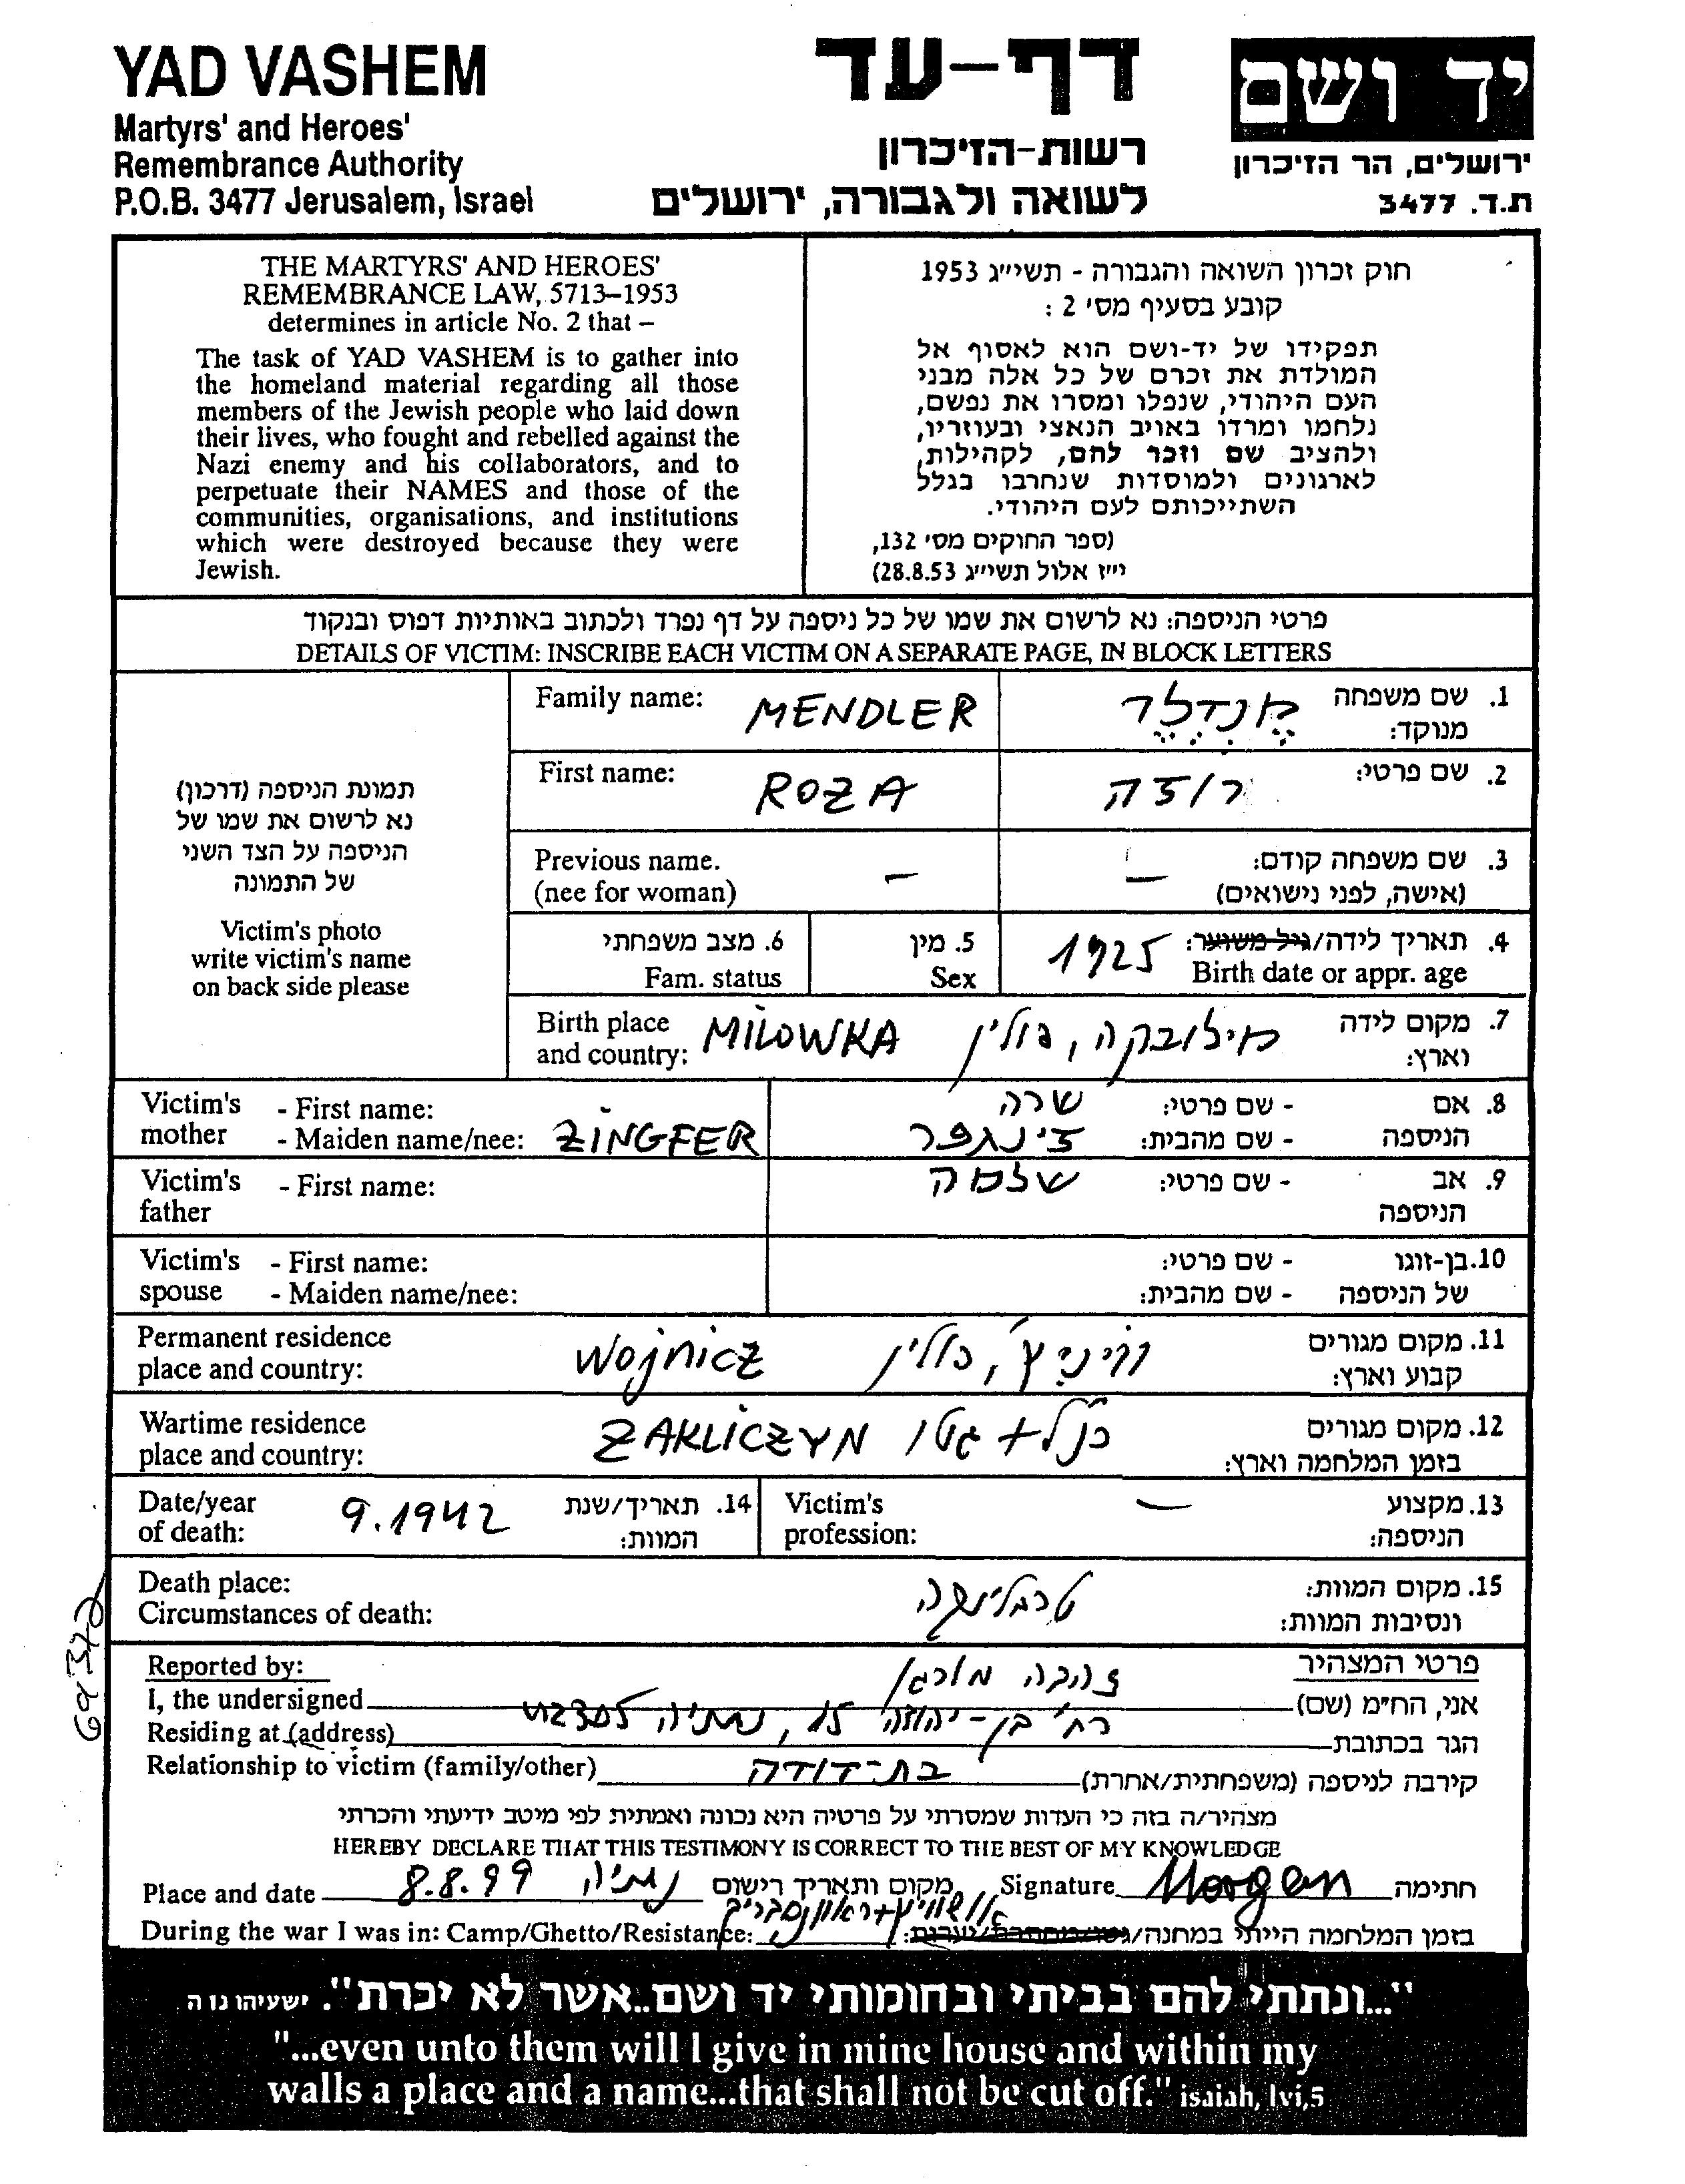 YAD VASHEM
Martyrs' and Heroes'
Remembrance Authority
P.O.B. 3477 Jerusalem, Israel
דף-עד
רשות-הזיכרון
לשואה ולגבורה, ירושלים
יד ושם
ירושלים, הר הזיכרון
ת.ד. 3477
THE MARTYRS' AND HEROES'
REMEMBRANCE LAW, 5713–1953
determines in article No. 2 that –
The task of YAD VASHEM is to gather into
the homeland material regarding all those
members of the Jewish people who laid down
their lives, who fought and rebelled against the
Nazi enemy and his collaborators, and to
perpetuate their NAMES and those of the
communities, organisations, and institutions
which were destroyed because they were
Jewish.
חוק זכרון השואה והגבורה - תשי״ג 1953
קובע בסעיף מס׳ 2 :
תפקידו של יד-ושם הוא לאסוף אל
המולדת את זכרם של כל אלה מבני
העם היהודי, שנפלו ומסרו את נפשם,
נלחמו ומרדו באויב הנאצי ובעוזריו,
ולהציב שם וזכר להם, לקהילות,
לארגונים ולמוסדות שנחרבו בגלל
השתייכותם לעם היהודי.
(ספר החוקים מס׳ 132,
י״ז אלול תשי״ג 28.8.53)
פרטי הניספה: נא לרשום את שמו של כל ניספה על דף נפרד ולכתוב באותיות דפוס ובנקוד
DETAILS OF VICTIM: INSCRIBE EACH VICTIM ON A SEPARATE PAGE, IN BLOCK LETTERS
תמונת הניספה (דרכון)
נא לרשום את שמו של
הניספה על הצד השני
של התמונה
Victim's photo
write victim's name
on back side please
Family name: MENDLER מֶנְדְלֶר 1. שם משפחה
מנוקד:
First name: ROZA רוזה 2. שם פרטי:
Previous name. – – 3. שם משפחה קודם:
(nee for woman) (אישה, לפני נישואים)
6. מצב משפחתי 5. מין 1925 4. תאריך לידה/גיל משוער:
Fam. status Sex Birth date or appr. age
Birth place MILOWKA מילובקה, פולין 7. מקום לידה
and country: וארץ:
Victim's - First name: שרה - שם פרטי: 8. אם
mother - Maiden name/nee: ZINGFER זינגפר - שם מהבית: הניספה
Victim's - First name: שלמה - שם פרטי: 9. אב
father הניספה
Victim's - First name: - שם פרטי: 10. בן-זוגו
spouse - Maiden name/nee: - שם מהבית: של הניספה
Permanent residence Wojnicz וויניץ', פולין 11. מקום מגורים
place and country: קבוע וארץ:
Wartime residence ZAKLICZYN כנ"ל + גטו 12. מקום מגורים
place and country: בזמן המלחמה וארץ:
Date/year 9.1942 14. תאריך/שנת Victim's — 13. מקצוע
of death: המוות: profession: הניספה:
Death place: טרבלינקה 15. מקום המוות:
Circumstances of death: ונסיבות המוות:
Reported by: פרטי המצהיר
I, the undersigned זהבה מורגן אני, הח״מ (שם)
Residing at (address) רח' בן-יהודה 15, נתניה הגר בכתובת
Relationship to victim (family/other) בת-דודה קירבה לניספה (משפחתית/אחרת)
מצהיר/ה בזה כי העדות שמסרתי על פרטיה היא נכונה ואמתית לפי מיטב ידיעתי והכרתי
HEREBY DECLARE THAT THIS TESTIMONY IS CORRECT TO THE BEST OF MY KNOWLEDGE
Place and date 8.8.99 נתניה מקום ותאריך רישום Signature Morgan חתימה
During the war I was in: Camp/Ghetto/Resistance: אושוויץ+ראוונסבריק בזמן המלחמה הייתי במחנה/גטו/מחתרת/יערות:
"...ונתתי להם בביתי ובחומותי יד ושם..אשר לא יכרת". ישעיהו נו ה
"...even unto them will I give in mine house and within my
walls a place and a name...that shall not be cut off." isaiah, lvi,5